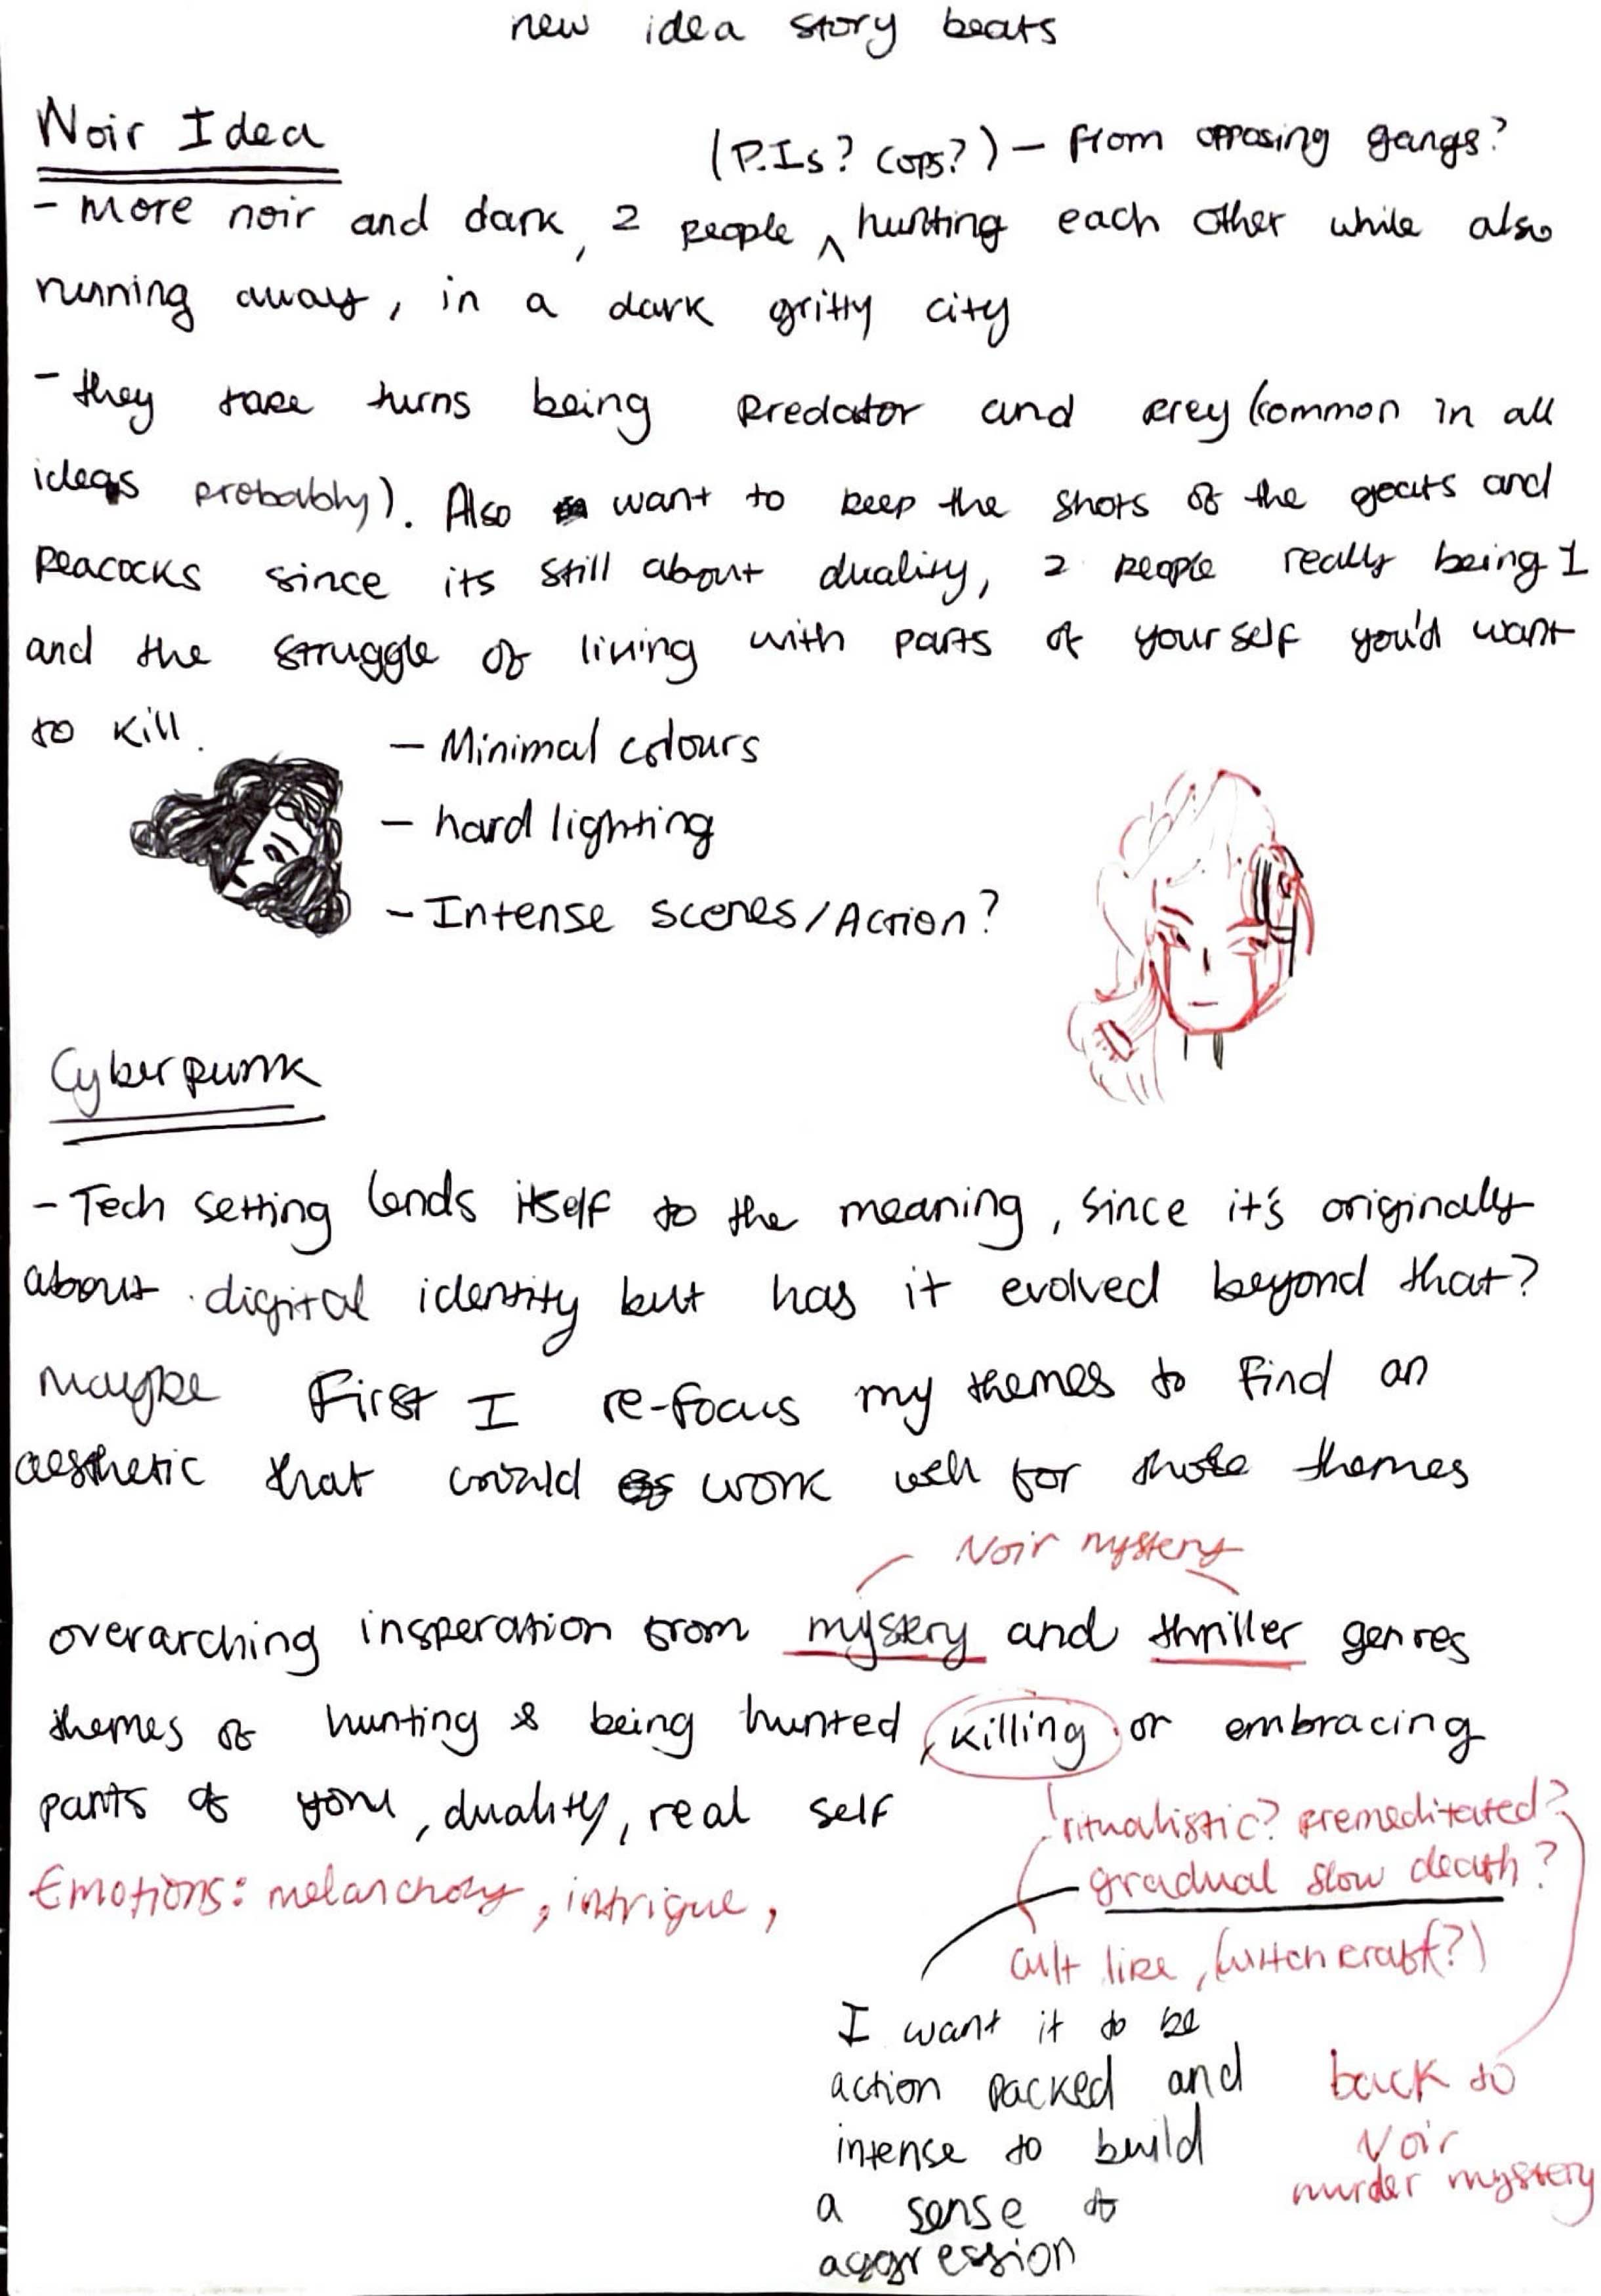 new idea story beats
Noir Idea
(P.Is? Cops?) - from opposing gangs?
- More noir and dark, 2 people ^ hunting each other while also
running away, in a dark gritty city
- they take turns being predator and prey (common in all
ideas probably). Also want to keep the shots of the goats and
peacocks since its still about duality, 2 people really being 1
and the struggle of living with parts of yourself you'd want
to kill.
- Minimal colours
- hard lighting
- Intense scenes/Action?
Cyberpunk
- Tech setting lends itself to the meaning, since it's originally
about digital identity but has it evolved beyond that?
maybe First I re-focus my themes to find an
aesthetic that could work well for those themes
Noir mystery
overarching insperation from mystery and thriller genres
themes of hunting & being hunted, killing or embracing
parts of you, duality, real self
ritualistic? premeditated?
- gradual slow death?
Emotions: melancholy, intrigue,
cult like, (witchcraft?)
I want it to be
action packed and
intense to build
a sense of
aggression
back to
Noir
murder mystery